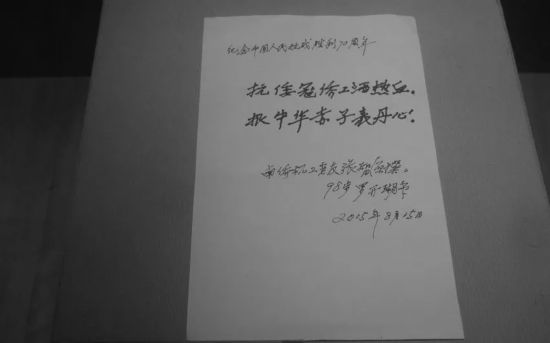 纪念中国人民抗战胜利70周年
抗倭寇侨工洒热血.
报中华赤子表丹心!
南侨机工老友张智金撰。
98岁 罗开瑚书
2015年8月15日